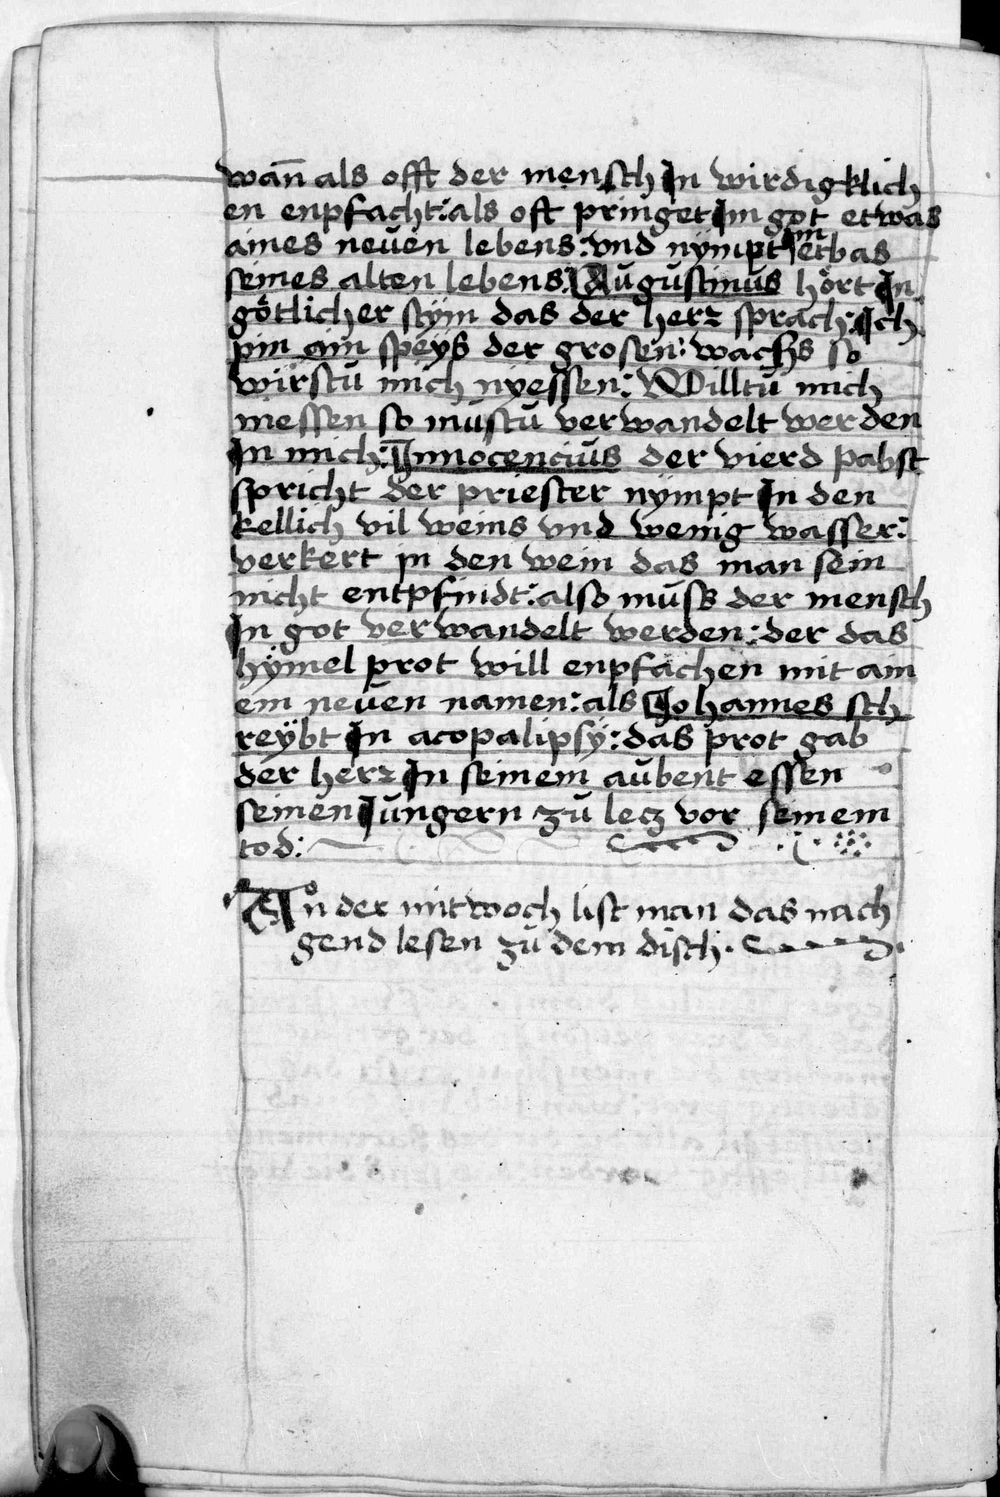 wan̄ als offt der mensch In wirdigklich
en enpfacht: als oft pringet Im got etwas
aines neuen lebens: vnd nympt im etbas
seines alten lebens: Augustinus hört In
götlicher stÿm das der herz sprach: Ich
pin ain speÿs der grosen: wachs so
wirstu mich nyessen: Willtu mich
niessen so mustu verwandelt werden
In mich: Innocencius der vierd pabst
spricht der priester nÿmpt In den
kellich vil weins vnd wenig wasser:
verkert in den wein das man sein
nicht entpfindt: also muss der mensch
In got verwandelt werden: der das
hÿmel prot will enpfachen mit ain
em neuen namen: als Johannes sch
reÿbt In acopalipsÿ: das prot gab
der herz In seinem aubent essen
seinen Jungern zu lecz vor seinem
tod:
An der mitwoch list man das nach
gend lesen zu dem disch.